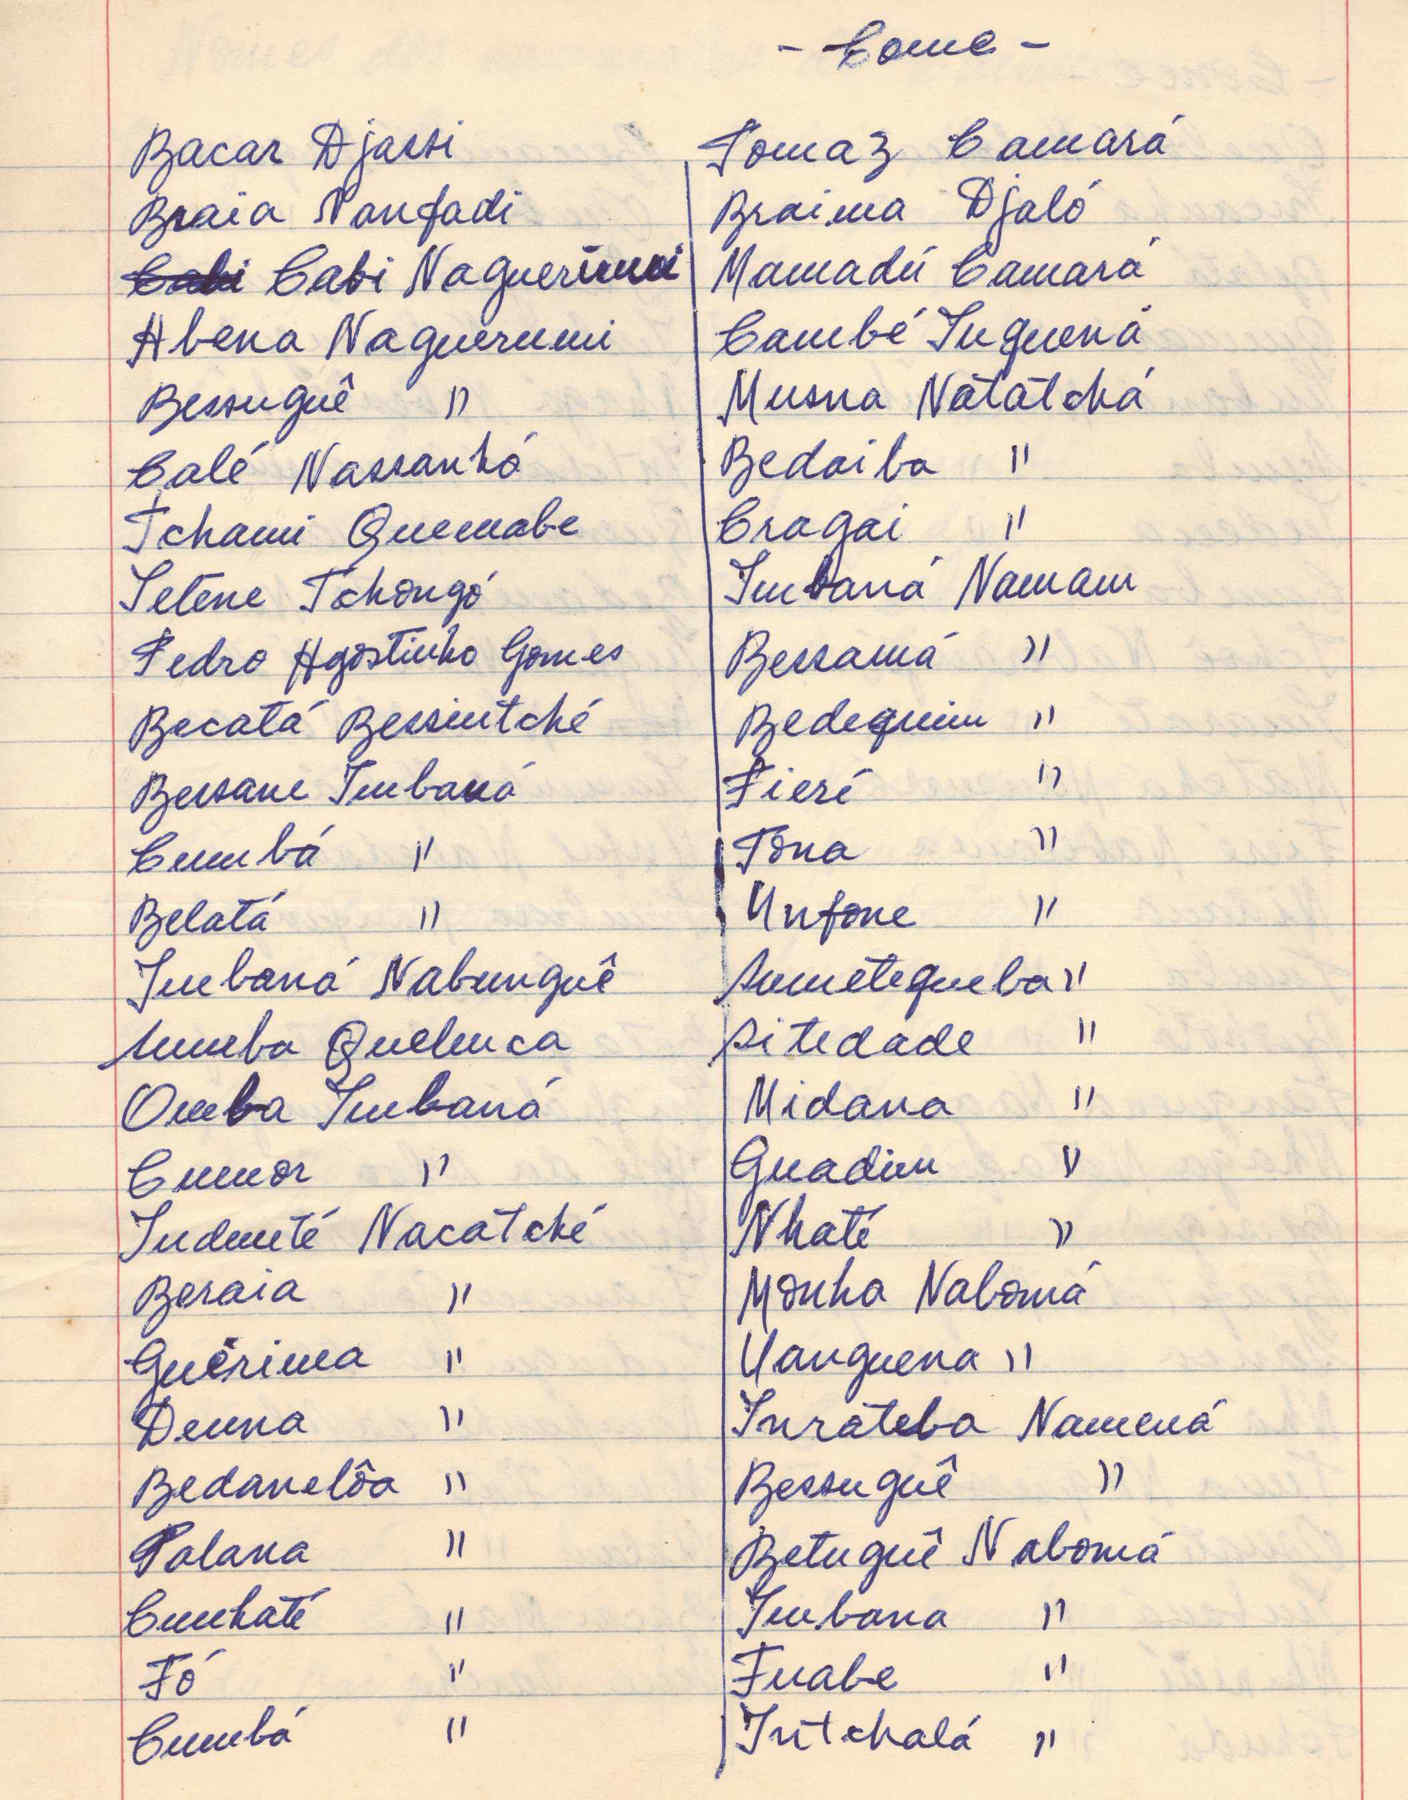 - Come -
Bacar Djassi
Braia Nanfadi
Cabi Naguerumi
Abena Naguerumi
Bessuguê "
Calé Nassanhá
Tchami Quemabe
Setene Tchongó
Pedro Agostinho Gomes
Becatá Bessintché
Bessane Imbaná
Cumbá "
Belatá "
Imbaná Nabunguê
Sumba Quelunca
Omba Imbaná
Cumor "
Indenté Nacatché
Beraia "
Guérima "
Denna "
Bedanelôa "
Palana "
Cunhaté "
Fó "
Cumbá "
Tomaz Camará
Braima Djaló
Mamadú Camará
Cambé Inguená
Musna Natatchá
Bedaiba "
Cragai "
Imbaná Namam
Bessamá "
Bedequim "
Fieré "
Tona "
Unfone "
Sumetequeba "
Sitedade "
Midana "
Guadim "
Nhaté "
Monha Nabomá
Uanguena "
Inrateba Namená
Bessuguê "
Betuguê Nabomá
Imbana "
Fuabe "
Intchalá "